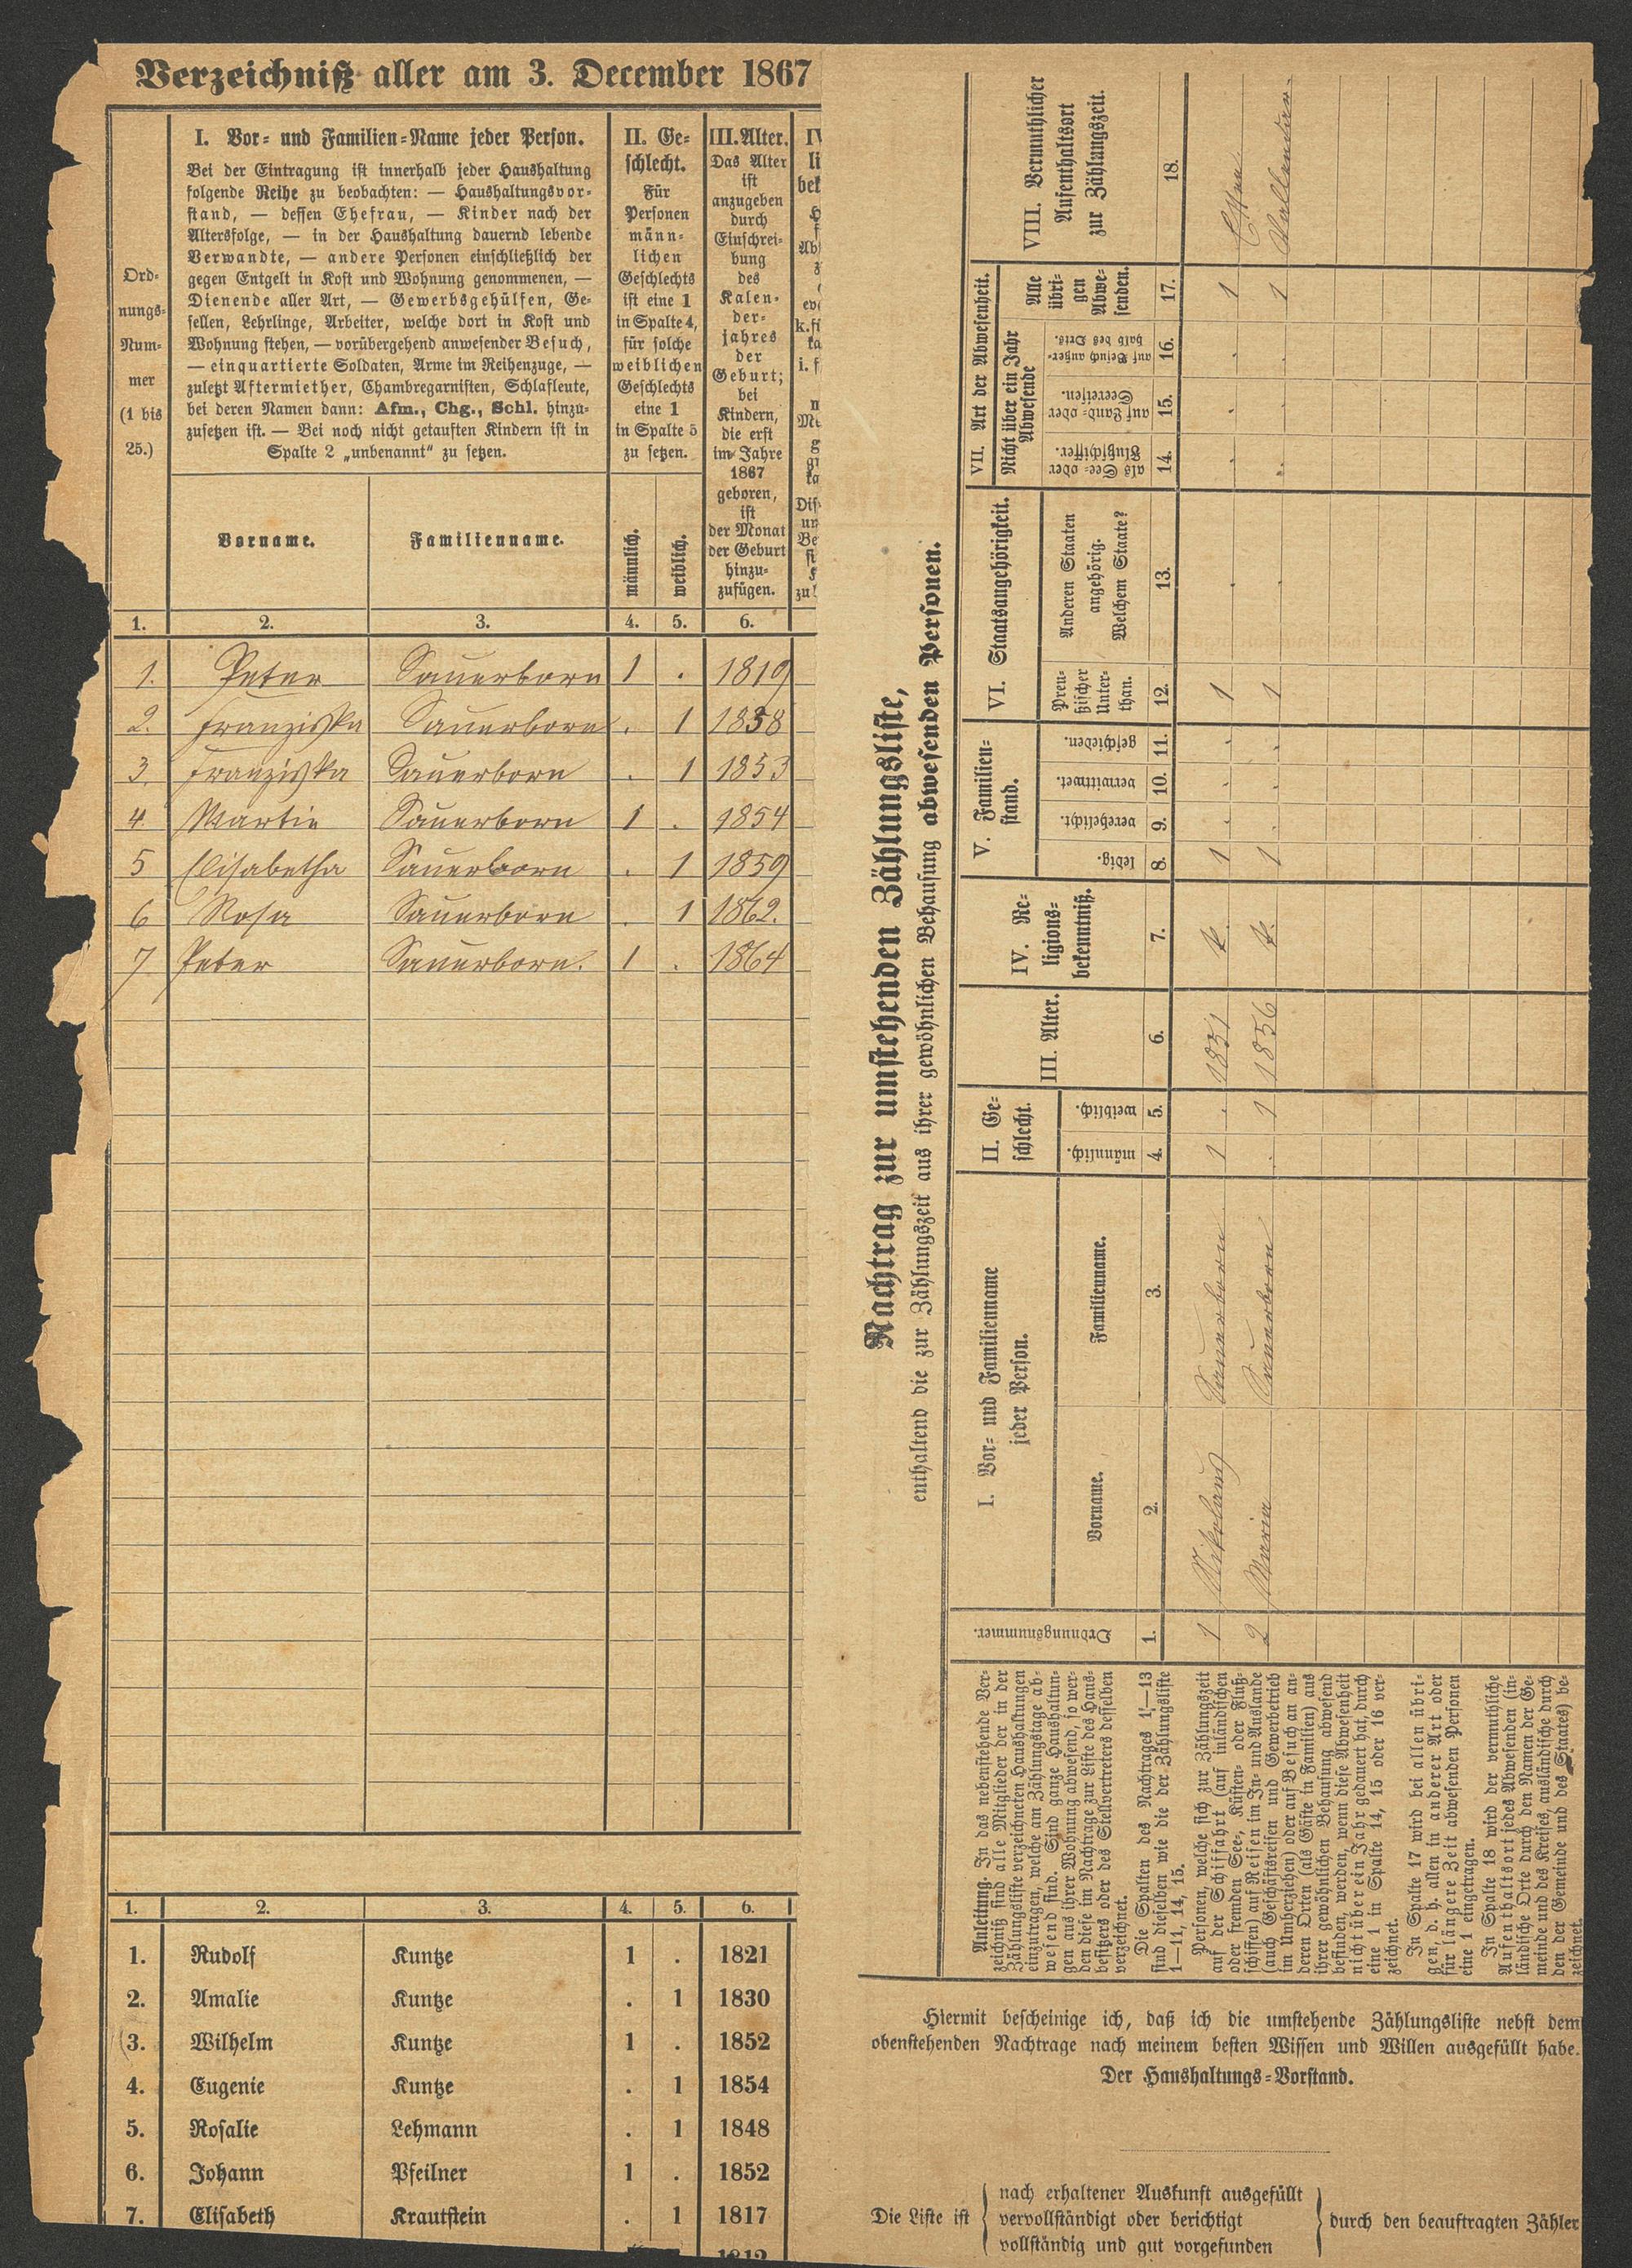 Verzeichniß aller am 3. December 1867
Ord-
nungs-
Num-
mer
(1 bis
25.)
I. Vor- und Familien-Name jeder Person.
Bei der Eintragung ist innerhalb jeder Haushaltung
folgende Reihe zu beobachten: — Haushaltungsvor-
stand, — dessen Ehefrau, — Kinder nach der
Altersfolge, — in der Haushaltung dauernd lebende
Verwandte, — andere Personen einschließlich der
gegen Entgelt in Kost und Wohnung genommenen, —
Dienende aller Art, — Gewerbsgehülfen, Ge-
sellen, Lehrlinge, Arbeiter, welche dort in Kost und
Wohnung stehen, — vorübergehend anwesender Besuch,
— einquartierte Soldaten, Arme im Reihenzuge, —
zuletzt Aftermiether, Chambregarnisten, Schlafleute,
bei deren Namen dann: Afm., Chg., Schl. hinzu-
zusetzen ist. — Bei noch nicht getauften Kindern ist in
Spalte 2 „unbenannt" zu setzen.
Vorname.
Familienname.
II. Ge-
schlecht.
Für
Personen
männ-
lichen
Geschlechts
ist eine 1
in Spalte 4,
für solche
weiblichen
Geschlechts
eine 1
in Spalte 5
zu setzen.
männlich.
weiblich.
III. Alter.
Das Alter
ist
anzugeben
durch
Einschrei-
bung
des
Kalen-
der-
jahres
der
Geburt;
bei
Kindern,
die erst
im Jahre
1867
geboren,
ist
der Monat
der Geburt
hinzu-
zufügen.
1. 2. 3. 4. 5. 6.
1. Peter Sauerborn 1 . 1819
2. Franziska Sauerborn . 1 1838
3 Franziska Sauerborn . 1 1853
4 Martin Sauerborn 1 . 1854
5 Elisabetha Sauerborn . 1 1859
6 Rosa Sauerborn . 1 1862.
7 Peter Sauerborn. 1 . 1864
1. 2. 3. 4. 5. 6.
1. Rudolf Kuntze 1 . 1821
2. Amalie Kuntze . 1 1830
3. Wilhelm Kuntze 1 . 1852
4. Eugenie Kuntze . 1 1854
5. Rosalie Lehmann . 1 1848
6. Johann Pfeilner 1 . 1852
7. Elisabeth Krautstein . 1 1817
1812
Nachtrag zur umstehenden Zählungsliste,
enthaltend die zur Zählungszeit aus ihrer gewöhnlichen Behausung abwesenden Personen.
Anleitung. In das nebenstehende Ver-
zeichniß sind alle Mitglieder der in der
Zählungsliste verzeichneten Haushaltungen
einzutragen, welche am Zählungstage ab-
wesend sind. Sind ganze Haushaltun-
gen aus ihrer Wohnung abwesend, so wer-
den diese im Nachtrage zur Liste des Haus-
besitzers oder des Stellvertreters desselben
verzeichnet.
Die Spalten des Nachtrages 1—13
sind dieselben wie die der Zählungsliste
1—11, 14, 15.
Personen, welche sich zur Zählungszeit
auf der Schifffahrt (auf inländischen
oder fremden See-, Küsten- oder Fluß-
schiffen) auf Reisen im In- und Auslande
(auch Geschäftsreisen und Gewerbetrieb
im Umherziehen) oder auf Besuch an an-
deren Orten (als Gäste in Familien) aus
ihrer gewöhnlichen Behausung abwesend
befinden, werden, wenn diese Abwesenheit
nicht über ein Jahr gedauert hat, durch
eine 1 in Spalte 14, 15 oder 16 ver-
zeichnet.
In Spalte 17 wird bei allen übri-
gen, d. h. allen in anderer Art oder
für längere Zeit abwesenden Personen
eine 1 eingetragen.
In Spalte 18 wird der vermuthliche
Aufenthaltsort jedes Abwesenden (in-
ländische Orte durch den Namen der Ge-
meinde und des Kreises, ausländische durch
den der Gemeinde und des Staates) be-
zeichnet.
Ordnungsnummer.
I. Vor- und Familienname
jeder Person.
Vorname.
Familienname.
II. Ge-
schlecht.
männlich.
weiblich.
III. Alter.
IV. Re-
ligions-
bekenntniß.
V. Familien-
stand.
ledig.
verehelicht.
verwittwet.
geschieden.
VI. Staatsangehörigkeit.
Preu-
ßischer
Unter-
than.
Anderen Staaten
angehörig.
Welchem Staate?
VII. Art der Abwesenheit.
Nicht über ein Jahr
Abwesende
als See- oder
Flußschiffer.
auf Land- oder
Seereisen.
auf Besuch außer-
halb des Orts.
Alle
übri-
gen
Abwe-
senden.
VIII. Vermuthlicher
Aufenthaltsort
zur Zählungszeit.
1. 2. 3. 4. 5. 6. 7. 8. 9. 10. 11. 12. 13. 14. 15. 16. 17. 18.
1 Nikolaus Sauerborn 1 . 1851 k. 1 . . . 1 . . . . 1 Essen
2 Maria Sauerborn . 1 1856 k. 1 . . . 1 . . . . 1 Vallendar.
Hiermit bescheinige ich, daß ich die umstehende Zählungsliste nebst dem
obenstehenden Nachtrage nach meinem besten Wissen und Willen ausgefüllt habe.
Der Haushaltungs-Vorstand.
Die Liste ist
nach erhaltener Auskunft ausgefüllt
vervollständigt oder berichtigt
vollständig und gut vorgefunden
durch den beauftragten Zähler